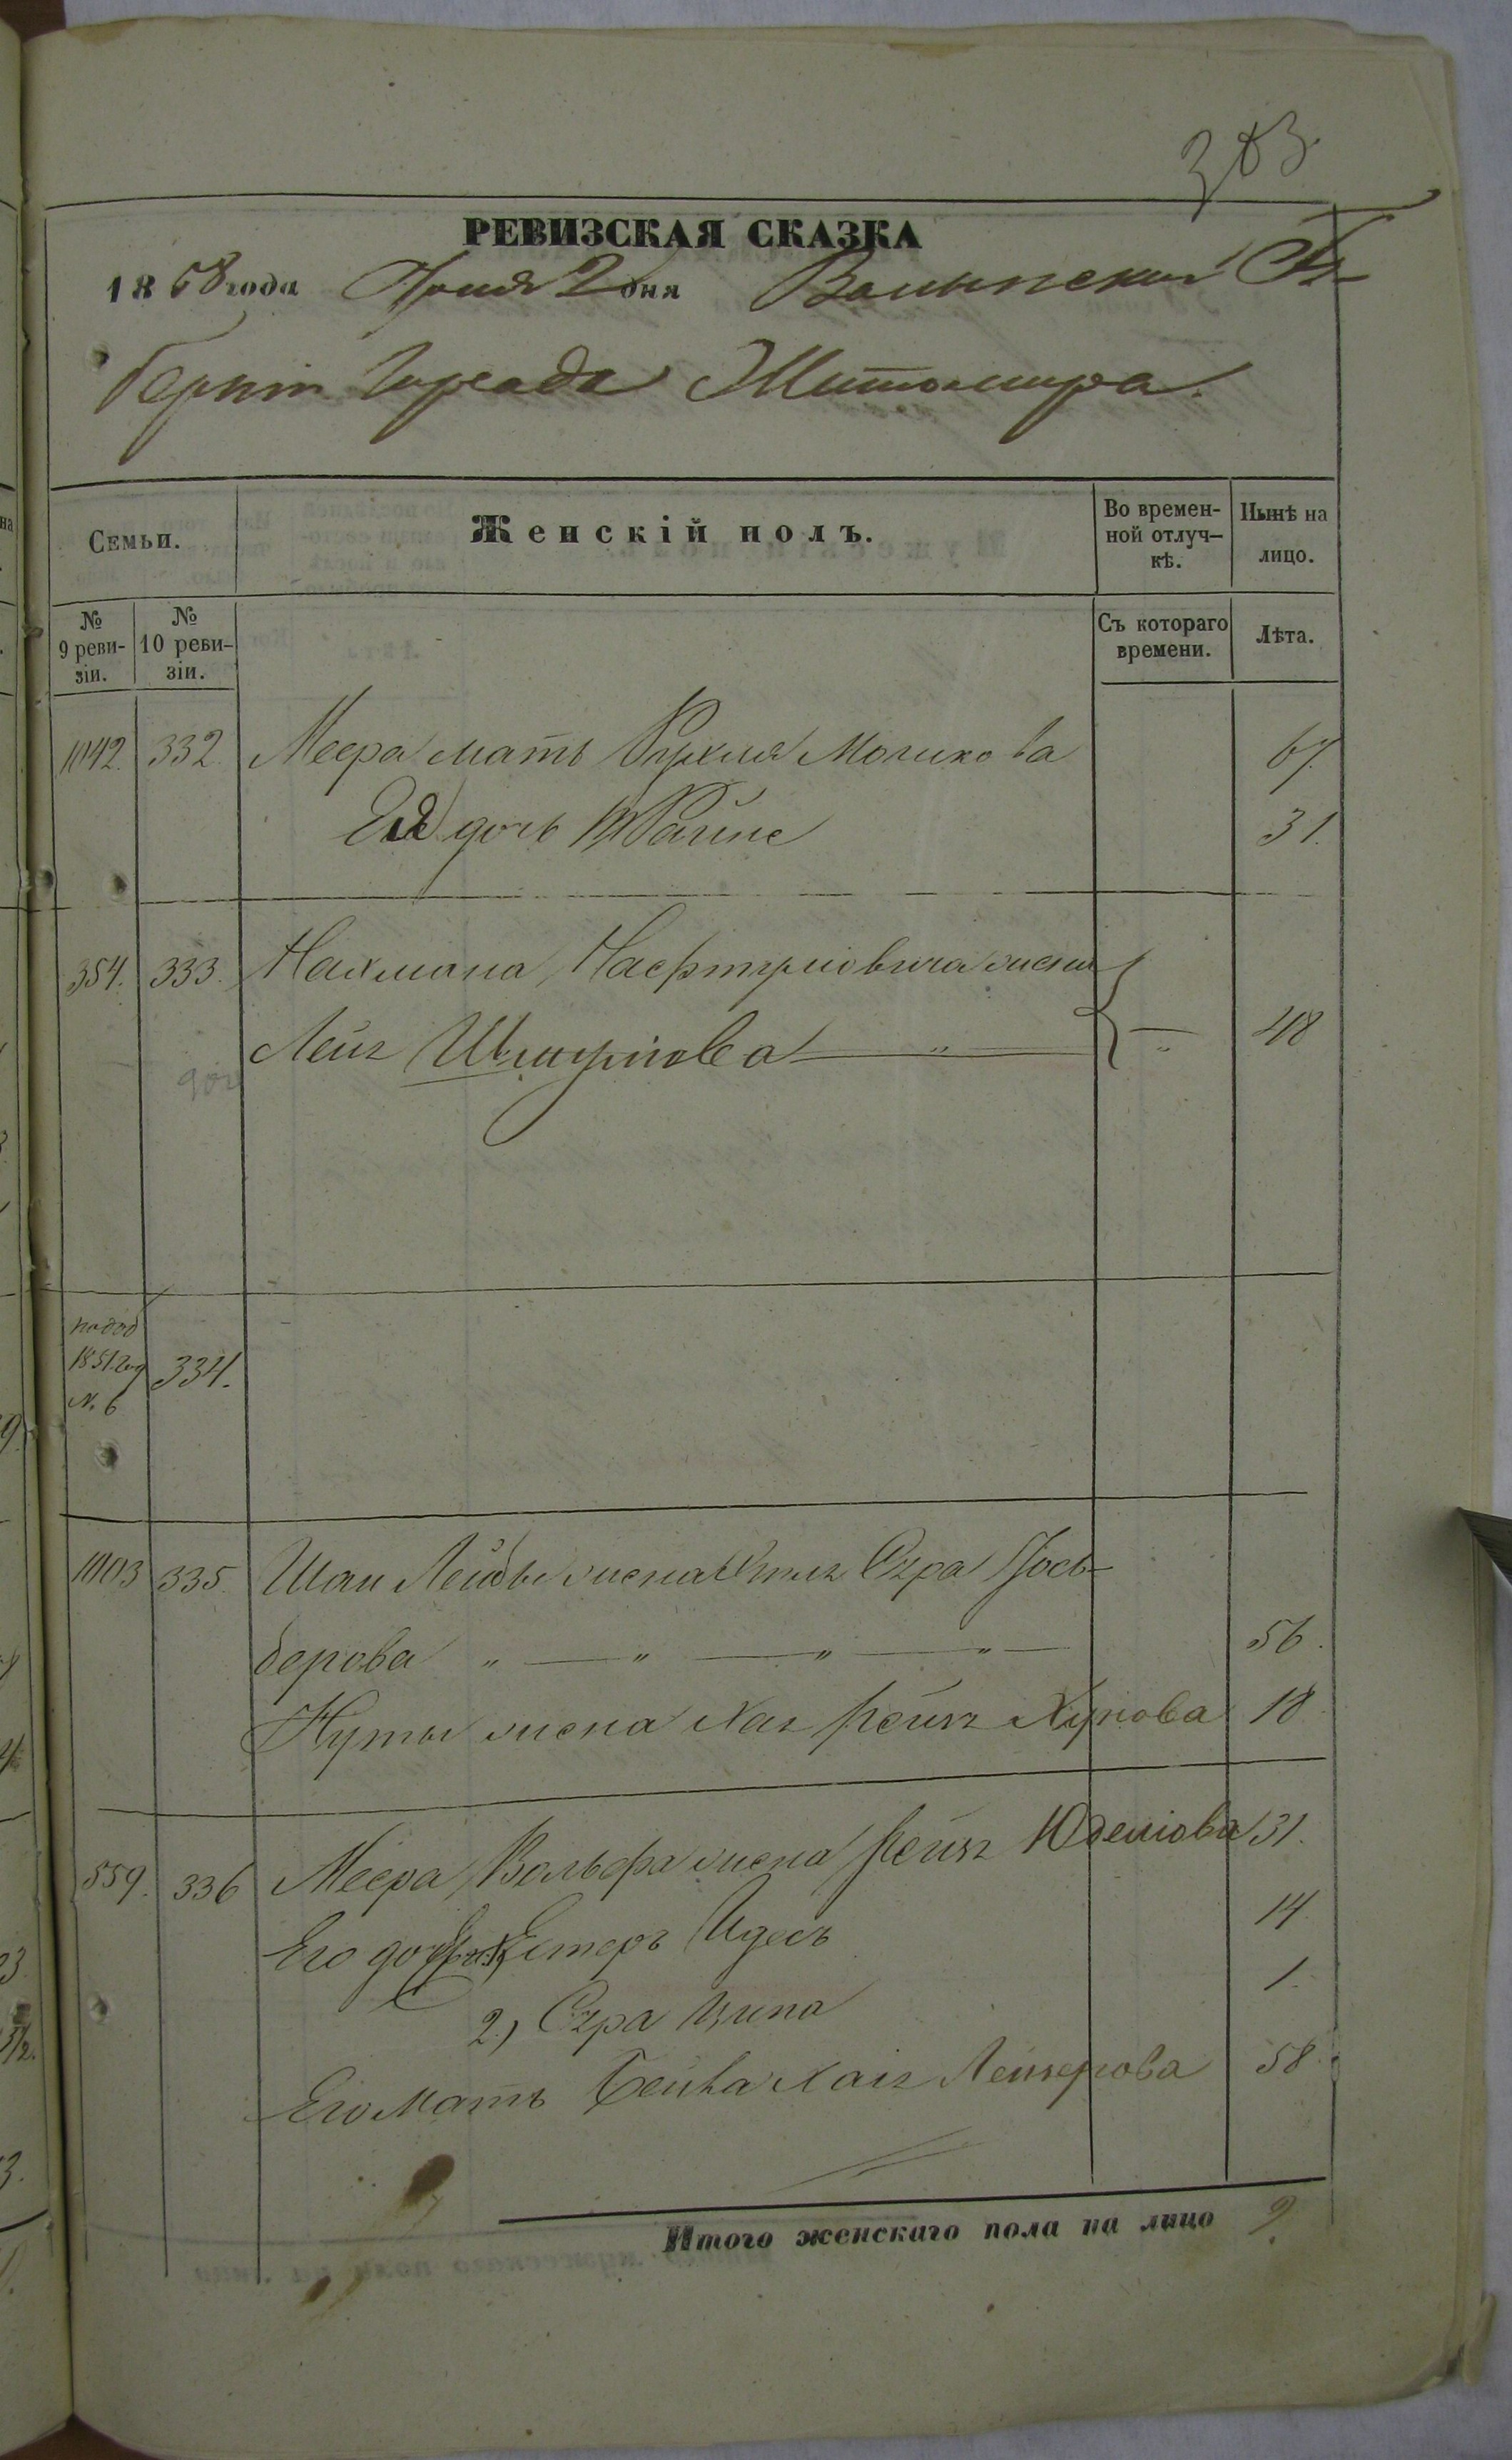 РЕВИЗСКАЯ СКАЗКА
1858 года Іюня 2 дня Волынской Гу-
берніи Города Житомира.
Семьи.
Женскій полъ.
Во времен-
ной отлуч-
кѣ.
Нынѣ на
лицо.
№
9 реви-
зіи.
№
10 реви-
зіи.
Съ котораго
времени.
Лѣта.
1042. 332. Меера мать Рухля Мошкова 67.
Ея дочь Файне 31.
354. 333. Нахмана Нафтуловича жена
Лея Шмулова 48
334.
1851 года
№ 6
1003 335. Шаи Лейбы жена Этля Сура Іось-
берова 56.
Нуты жена Хая Рейзя 18
559. 336 Меера Вольфа жена Рейзя Юделіова 31.
Его дочери Естеръ Идесъ 14
2.) Сура Ципа 1.
Его мать Бейла Хая Лейзерова 58.
Итого женскаго пола на лицо 9.